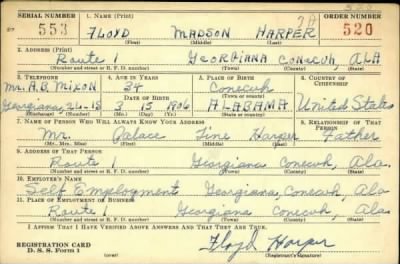 SERIAL NUMBER 1. NAME (Print) ORDER NUMBER
553 FLOYD MADSON HARPER 520
(First) (Middle) (Last)
2. ADDRESS (Print)
Route 1 GEORGIANA CONECUH, ALA
(Number and street or R. F. D. number) (Town) (County) (State)
3. TELEPHONE 4. AGE IN YEARS 5. PLACE OF BIRTH 6. COUNTRY OF CITIZENSHIP
Mr. A.B. MIXON 34 Conecuh
DATE OF BIRTH (Town or county)
Georgiana 26-15 3 15 1906 ALABAMA United States
(Exchange) (Number) (Mo.) (Day) (Yr.) (State or country)
7. NAME OF PERSON WHO WILL ALWAYS KNOW YOUR ADDRESS 8. RELATIONSHIP OF THAT PERSON
Mr. Palace Tine Harper Father
(Mr., Mrs., Miss) (First) (Middle) (Last)
9. ADDRESS OF THAT PERSON
Route 1 Georgiana Conecuh, Ala.
(Number and street or R. F. D. number) (Town) (County) (State)
10. EMPLOYER'S NAME
Self Employment Georgiana, Conecuh, Ala
11. PLACE OF EMPLOYMENT OR BUSINESS
Route 1 Georgiana Conecuh, Ala.
(Number and street or R. F. D. number) (Town) (County) (State)
I AFFIRM THAT I HAVE VERIFIED ABOVE ANSWERS AND THAT THEY ARE TRUE.
REGISTRATION CARD
D. S. S. Form 1 Floyd Harper
(Registrant's signature)